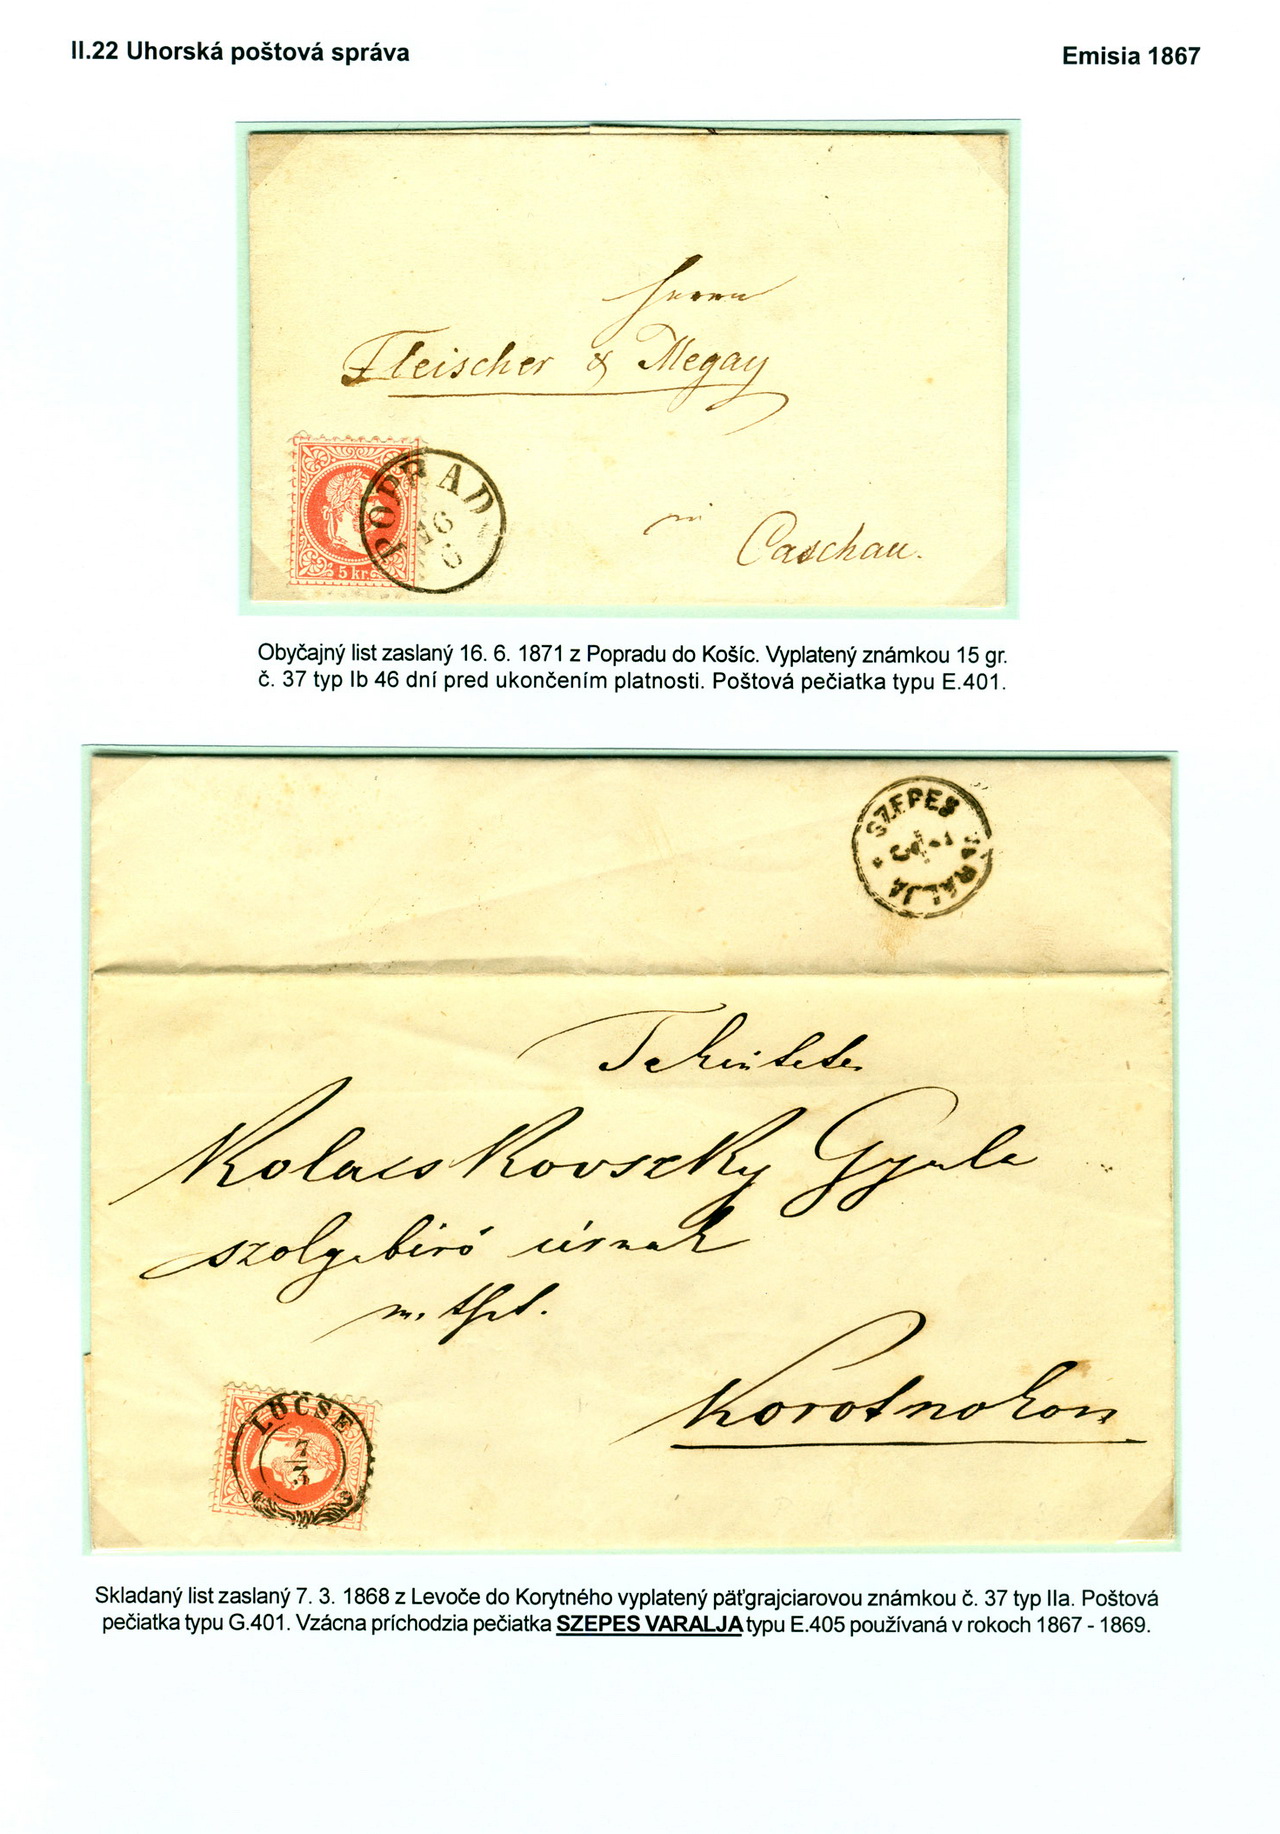 II.22 Uhorská poštová správa
Emisia 1867
Herrn
Fleischer & Megay
in Caschau.
5 kr.
POPRAD
16
6
Obyčajný list zaslaný 16. 6. 1871 z Popradu do Košíc. Vyplatený známkou 15 gr.
č. 37 typ Ib 46 dní pred ukončením platnosti. Poštová pečiatka typu E.401.
SZEPES
VÁRALJA
Tekintetes
Kolacskovszky Gyula
szolgabíró úrnak
m. thpl.
Korotnokon
LŐCSE
7
3
Skladaný list zaslaný 7. 3. 1868 z Levoče do Korytného vyplatený päťgrajciarovou známkou č. 37 typ IIa. Poštová
pečiatka typu G.401. Vzácna príchodzia pečiatka SZEPES VARALJA typu E.405 používaná v rokoch 1867 - 1869.